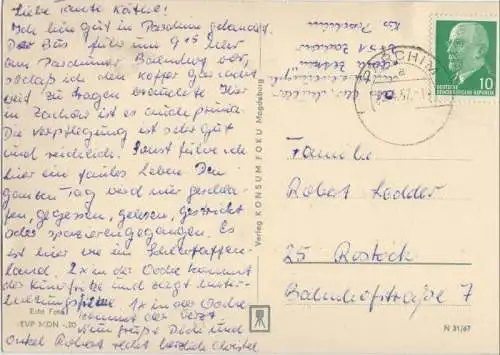 Liebe Tante Käthe!
Ich bin gut in Parchim gelandet.
Der Bus fuhr um 9 15 hier
am Parchimer Bahnhof vor,
sodaß ich den Koffer gar nicht
weit zu tragen brauchte. Hier
in Zachow ist es auch prima.
Die Verpflegung ist sehr gut
und reichlich. Sonst führe ich
hier ein faules Leben. Den
ganzen Tag wird nur geschla-
fen, gegessen, gelesen, gestrickt
oder spazierengegangen. Es
ist hier wie im Schlaraffen-
land. 2x in der Woche kommt
der und zeigt
1x in der Woche
kommt der Arzt.
Nun grüße Dich und
Onkel Robert recht herzlich Christel
Echt Foto
EVP MDN -,20
Verlag KONSUM FOKU Magdeburg
2851 Zachow
Kr. Parchim
PARCHIM
a
DEUTSCHE
DEMOKRATISCHE REPUBLIK
10
Familie
Robert Lodder
25 Rostock
Bahnhofstraße 7
N 31/67